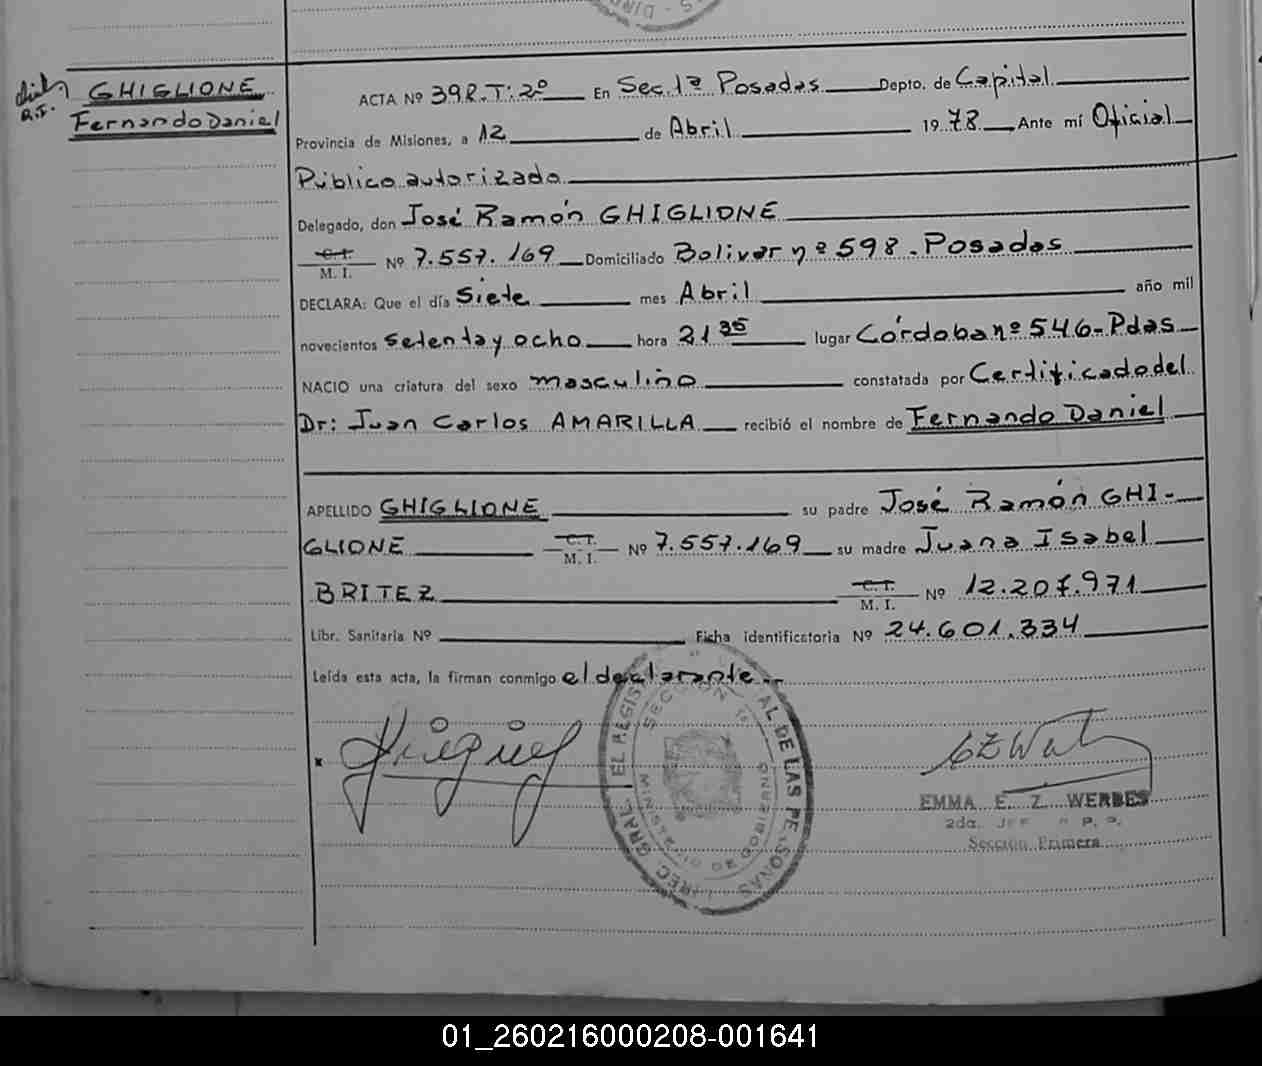 GHIGLIONE
Fernando Daniel
ACTA Nº 398.T:2º En Sec.1ª Posadas Depto. de Capital
Provincia de Misiones, a 12 de Abril 1978 Ante mí Oficial
Público autorizado
Delegado, don José Ramón GHIGLIONE
C.I. M. I. Nº 7.557.169 Domiciliado Bolivar nº 598. Posadas
DECLARA: Que el día Siete mes Abril año mil
novecientos setenta y ocho hora 21 35 lugar Córdoba nº 546-Pdas
NACIO una criatura del sexo masculino constatada por Certificado del
Dr: Juan Carlos AMARILLA recibió el nombre de Fernando Daniel
APELLIDO GHIGLIONE su padre José Ramón GHI-
GLIONE C.I. M. I. Nº 7.557.169 su madre Juana Isabel
BRITEZ C.I. M. I. Nº 12.207.971
Libr. Sanitaria Nº Ficha identificatoria Nº 24.601.334
Leída esta acta, la firman conmigo el declarante..
EMMA E. Z. WERBES
2da. JEF
Sección Primera
SECCION 1ª
MINISTERIO DE GOBIERNO
01_260216000208-001641